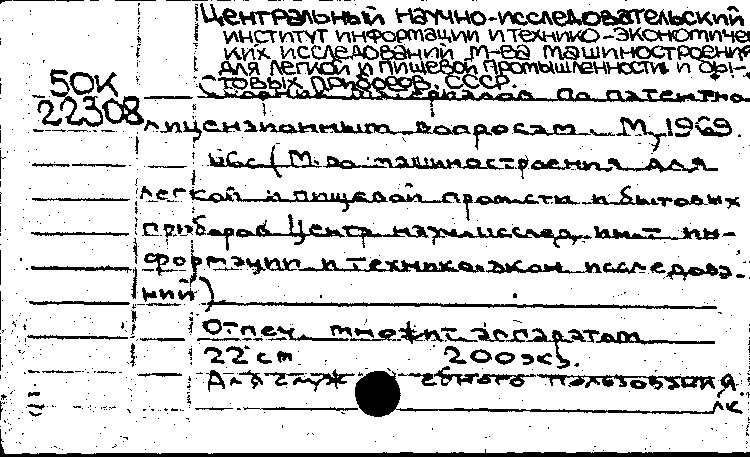 Центральный научно-исследовательский
институт информации и технико-экономичес
ких исследований м-ва машиностроения
для легкой и пищевой промышленности и бы-
50К
товых приборов, СССР.
22308
Сборник материалов по патентно
лицензионным вопросам. М, 1969.
(М-во машиностроения для
легкой и пищевой пром-сти и бытовых
приборов Центр науч.-исслед. ин-т ин-
формации и технико-экон исследова-
ний)
Отпеч. множит аппаратом
22 см 200 экз.
Для служебного пользования.